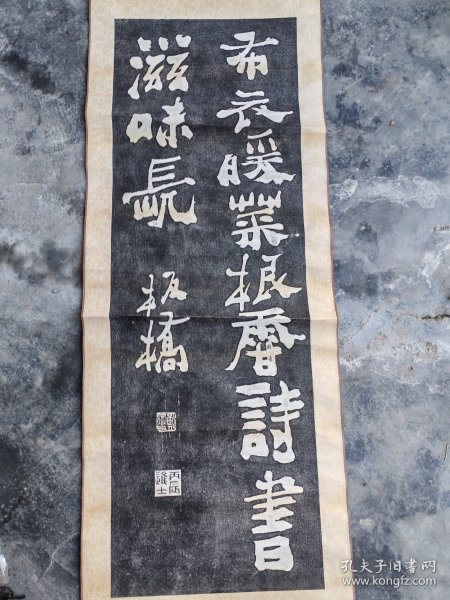 布衣暖菜根香詩書
滋味長
板橋
丙辰
進士
孔夫子旧书网
www.kongfz.com